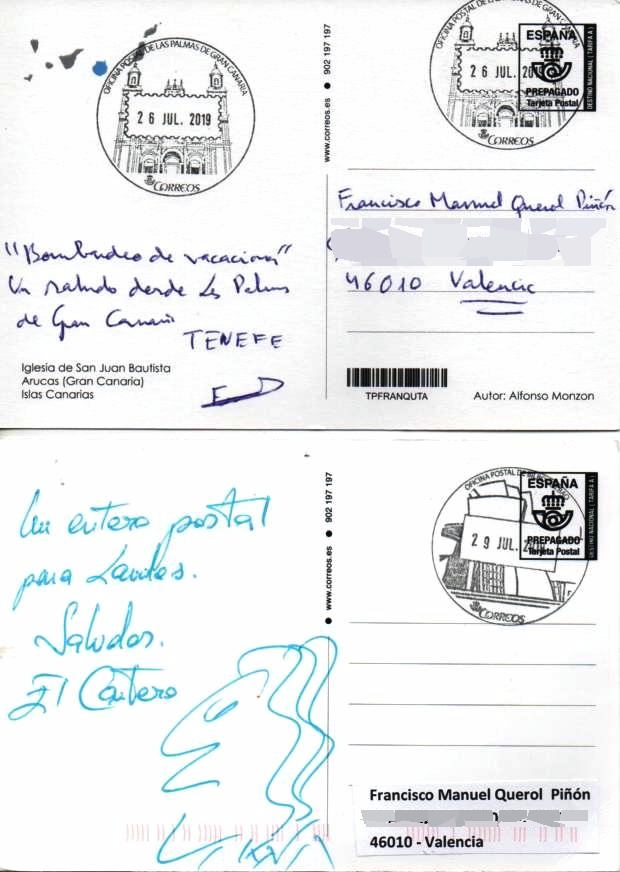 OFICINA POSTAL DE LAS PALMAS DE GRAN CANARIA
26 JUL. 2019
CORREOS
www.correos.es ● 902 197 197
26 JUL. 2019
CORREOS
ESPAÑA
PREPAGADO
Tarjeta Postal
DESTINO NACIONAL (TARIFA A)
Francisco Manuel Querol Piñón
46010 Valencia
"Bombardeo de vacaciones"
Un saludo desde Las Palmas
de Gran Canaria
TENEFE
Iglesia de San Juan Bautista
Arucas (Gran Canaria)
Islas Canarias
TPFRANQUTA
Autor: Alfonso Monzon
www.correos.es ● 902 197 197
OFICINA POSTAL DE
29 JUL.
CORREOS
ESPAÑA
PREPAGADO
Tarjeta Postal
DESTINO NACIONAL (TARIFA A)
Un entero postal
para
Saludos.
El Cartero
Francisco Manuel Querol Piñón
46010 - Valencia